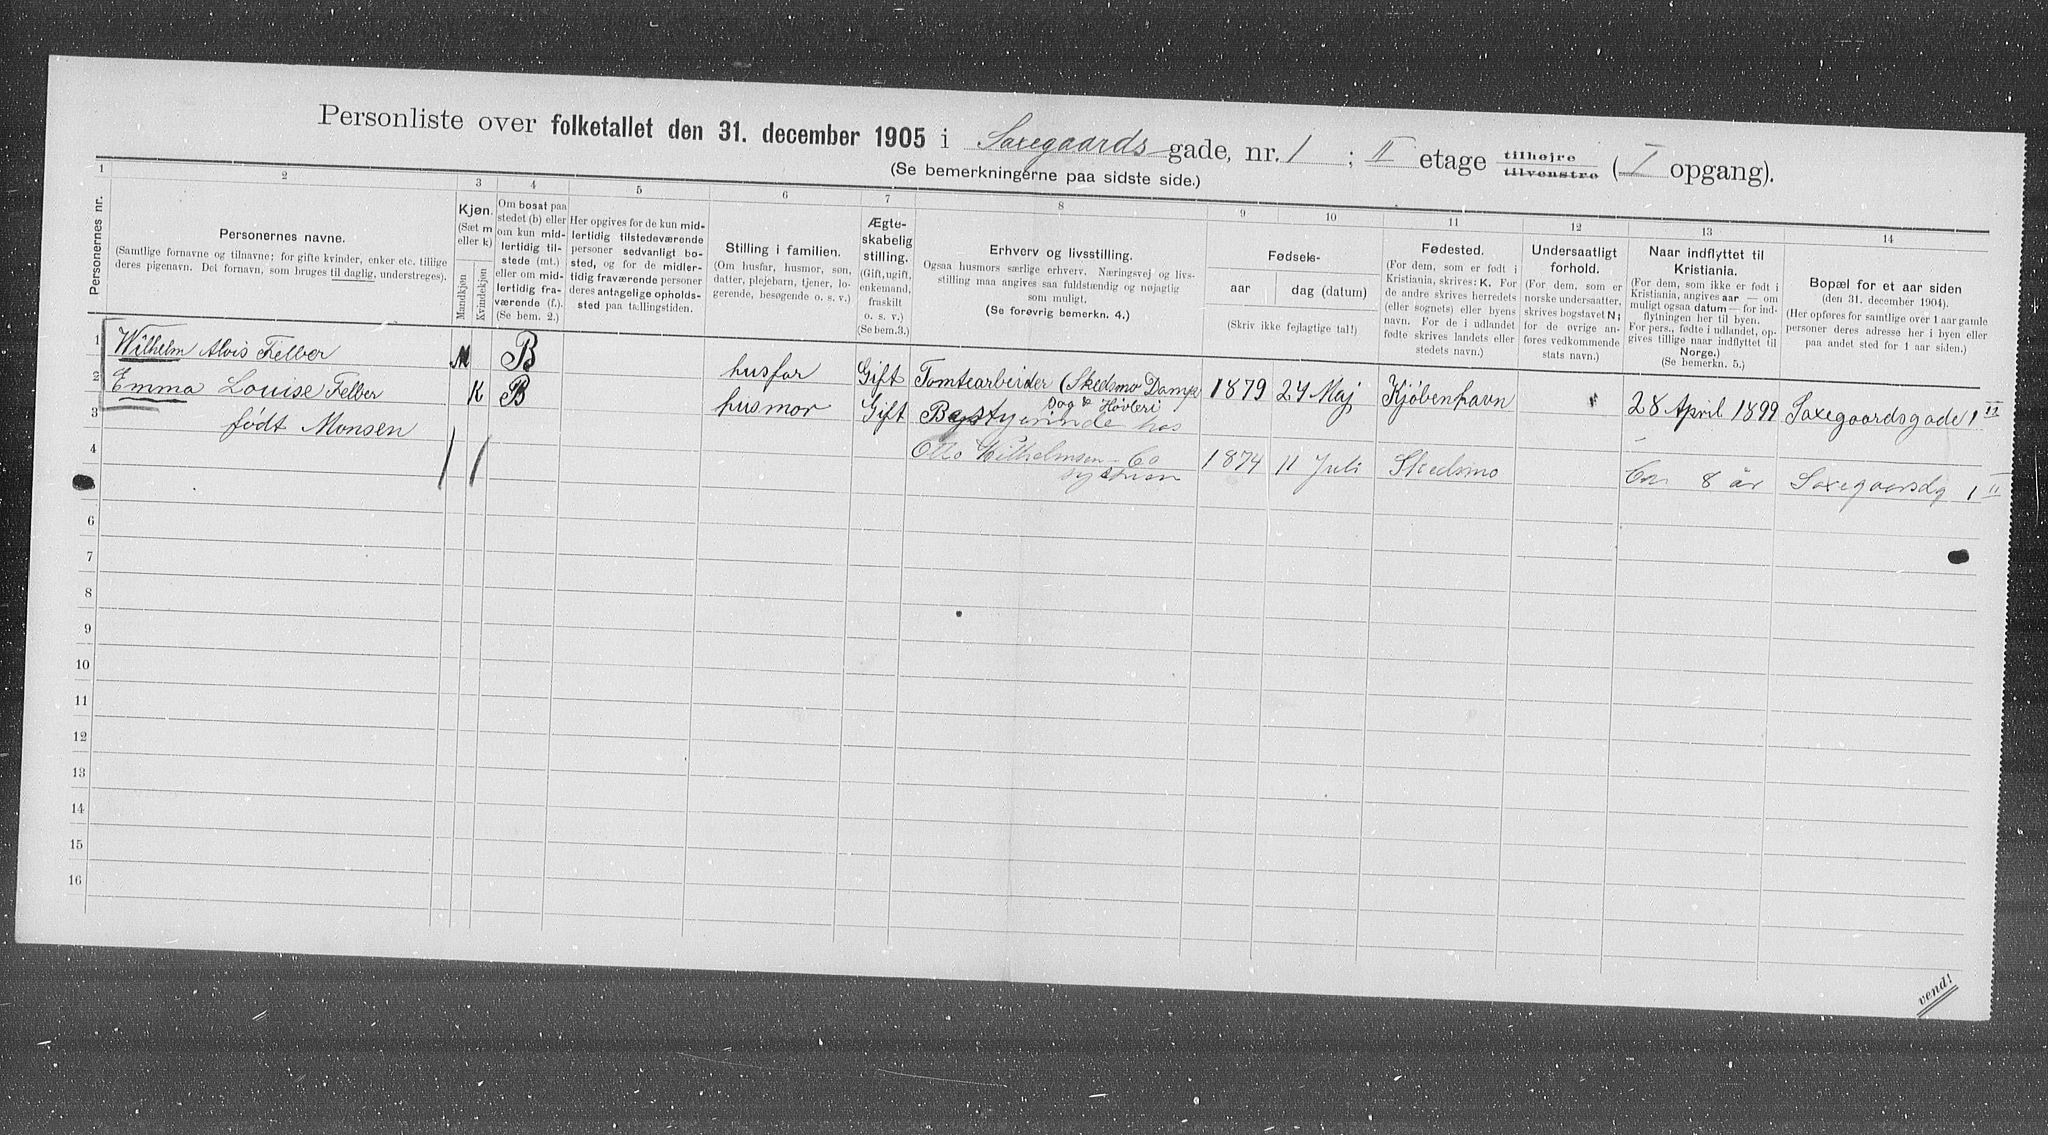 Personliste over folketallet den 31. december 1905 i Saxegaards gade, nr. 1 ; II etage tilhøjre tilvenstre ( I opgang).
(Se bemerkningerne paa sidste side.)
1 2 3 4 5 6 7 8 9 10 11 12 13 14
Personernes nr.
Personernes navne.
(Samtlige fornavne og tilnavne; for gifte kvinder, enker etc. tillige
deres pigenavn. Det fornavn, som bruges til daglig, understreges).
Kjøn.
(Sæt m
eller k)
Mandkjøn
Kvindekjøn
Om bosat paa
stedet (b) eller
om kun mid-
lertidig til-
stede (mt.)
eller om mid-
lertidig fra-
værende (f.).
(Se bem. 2.)
Her opgives for de kun mid-
lertidig tilstedeværende
personer sedvanligt bo-
sted, og for de midler-
tidig fraværende personer
deres antagelige opholds-
sted paa tællingstiden.
Stilling i familien.
(Om husfar, husmor, søn,
datter, plejebarn, tjener, lo-
gerende, besøgende o. s. v.)
Ægte-
skabelig
stilling.
(Gift, ugift,
enkemand,
fraskilt
o. s. v.)
(Se bem.3.)
Erhverv og livsstilling.
Ogsaa husmors særlige erhverv. Næringsvej og livs-
stilling maa angives saa fuldstændig og nøjagtig
som muligt.
(Se forøvrig bemerkn. 4.)
Fødsels-
aar
dag (datum)
(Skriv ikke fejlagtige tal!)
Fødested.
(For dem, som er født i
Kristiania, skrives: K. For
de andre skrives herredets
(eller sognets) eller byens
navn. For de i udlandet
fødte skrives landets eller
stedets navn.)
Undersaatligt
forhold.
(For dem, som er
norske undersaatter,
skrives bogstavet N;
for de øvrige an-
føres vedkommende
stats navn.)
Naar indflyttet til
Kristiania.
(For dem, som ikke er født i
Kristiania, angives aar — om
muligt ogsaa datum — for ind-
flytningen her til byen.
For pers., fødte i udlandet, op-
gives tillige naar indflyttet til
Norge.)
(Se bemerkn. 5.)
Bopæl for et aar siden
(den 31. december 1904).
(Her opføres for samtlige over 1 aar gamle
personer deres adresse her i byen eller
paa andet sted for 1 aar siden.)
1 Wilhelm Alvis Felber M B husfar Gift Tomtearbeider (Skedsmo Damps 1879 27 Maj Kjøbenhavn 28 April 1899 Saxegaardsgade 1 II
Sag & Høvleri
2 Emma Louise Felber K B husmor Gift hos
3 født Monsen
4 Otto Wilhelmsen Co 1874 11 Juli Skedsmo Ca 8 år Saxegaardsg 1 II
6
7
8
9
10
11
12
13
14
15
16
vend!